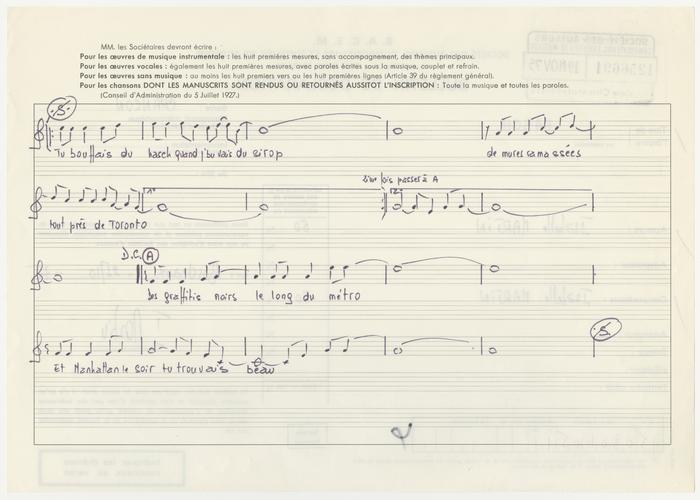 MM. les Sociétaires devront écrire :
Pour les œuvres de musique instrumentale : les huit premières mesures, sans accompagnement, des thèmes principaux.
Pour les œuvres vocales : également les huit premières mesures, avec paroles écrites sous la musique, couplet et refrain.
Pour les œuvres sans musique : au moins les huit premiers vers ou les huit premières lignes (Article 39 du règlement général).
Pour les chansons DONT LES MANUSCRITS SONT RENDUS OU RETOURNÉS AUSSITOT L'INSCRIPTION : Toute la musique et toutes les paroles.
(Conseil d'Administration du 5 Juillet 1927.)
Tu bouffais du hasch quand j'buvais du sirop de mures ramassées
fois passer à A
tout près de Toronto
D.C. A
Des graffitis noirs le long du métro
Et Manhattan le soir tu trouvais beau